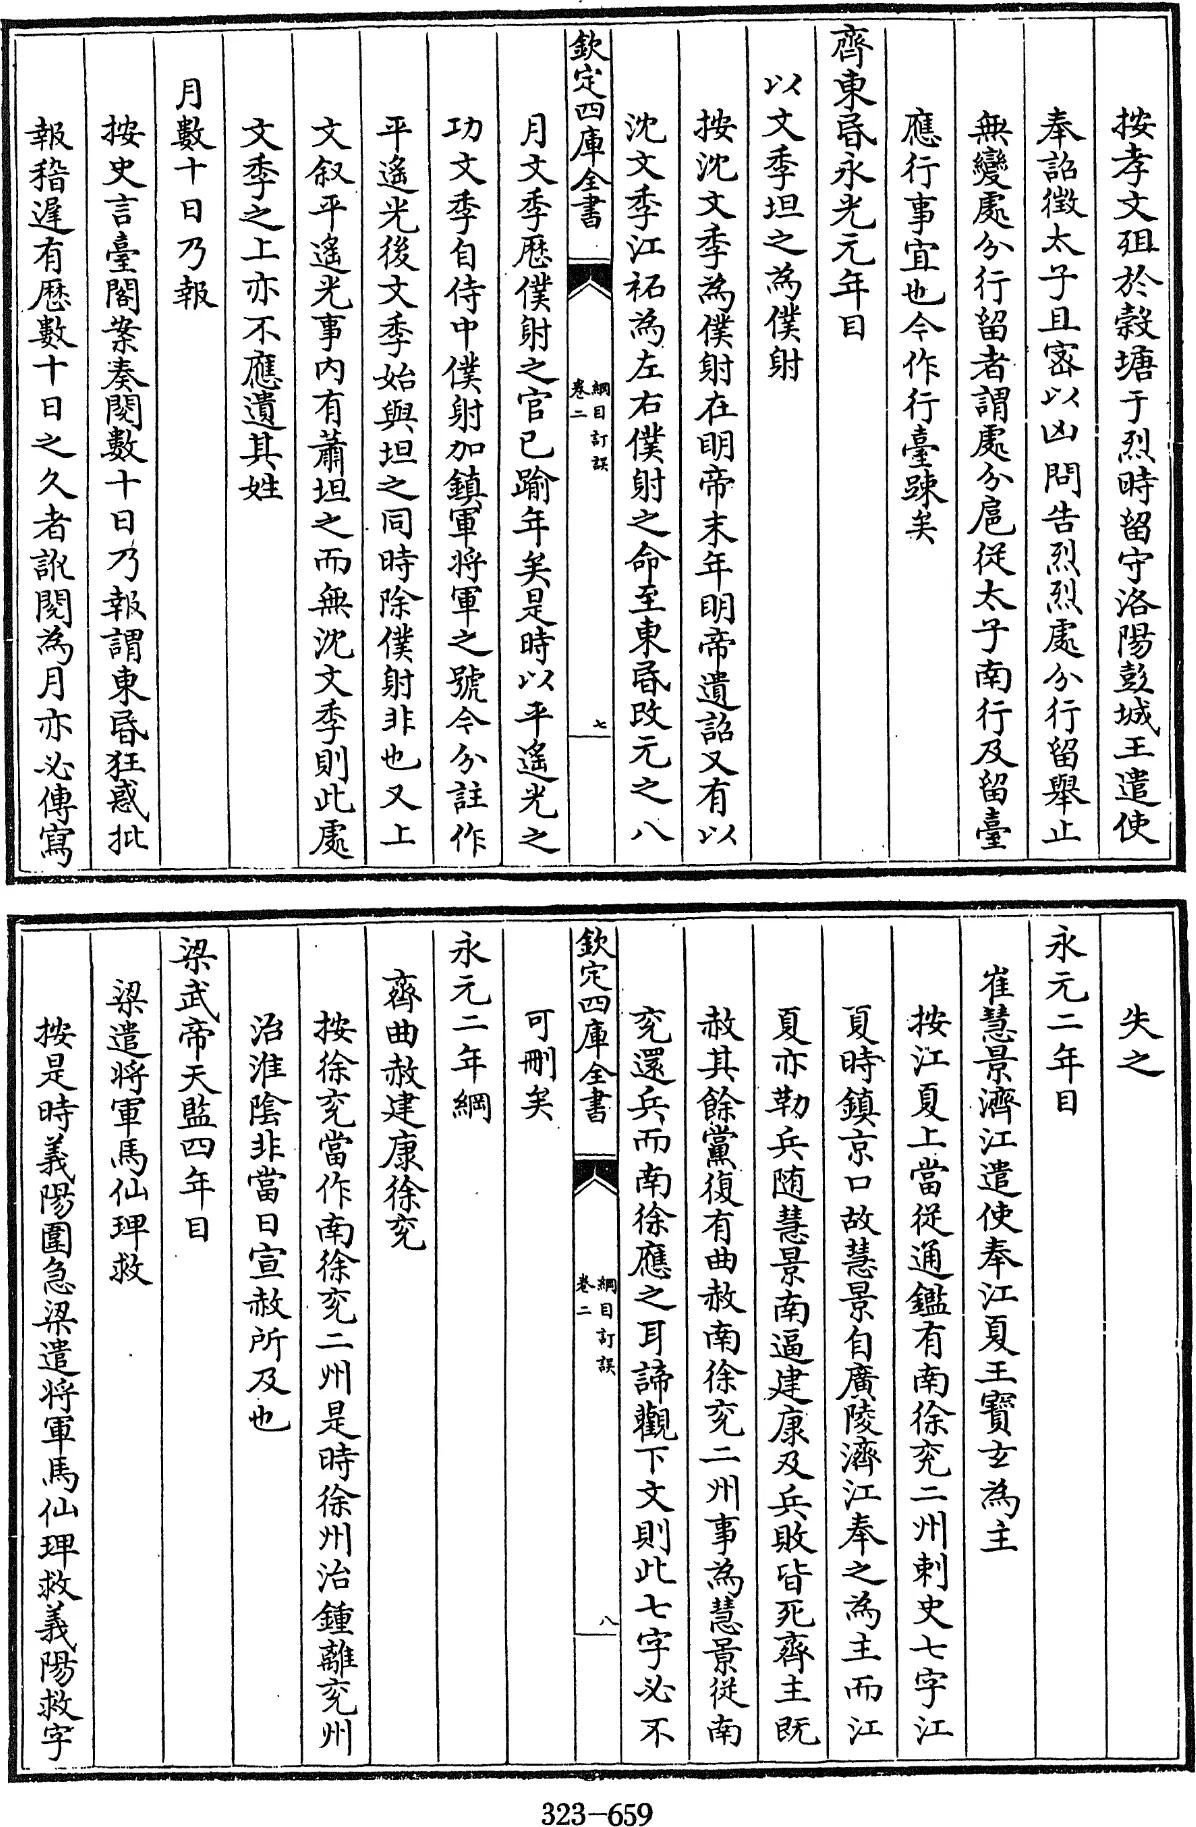 按孝文殂於穀塘于烈時留守洛陽彭城王遣使
奉詔徵太子且宻以凶問告烈烈處分行留舉止
無變處分行留者謂處分扈從太子南行及留臺
應行事宜也今作行臺踈矣
齊東昏永光元年目
以文季坦之為僕射
按沈文季為僕射在明帝末年明帝遺詔又有以
沈文季江祏為左右僕射之命至東昏改元之八
欽定四庫全書
綱目訂誤
卷二
七
月文季歷僕射之官已踰年矣是時以平遙光之
功文季自侍中僕射加鎮軍將軍之號今分註作
平遙光後文季始與坦之同時除僕射非也又上
文叙平遙光事內有蕭坦之而無沈文季則此處
文季之上亦不應遺其姓
月數十日乃報
按史言臺閣案奏閱數十日乃報謂東昏狂惑批
報稽遲有歷數十日之久者訛閱為月亦必傳寫
失之
永元二年目
崔慧景濟江遣使奉江夏王寶玄為主
按江夏上當從通鑑有南徐兖二州刺史七字江
夏時鎮京口故慧景自廣陵濟江奉之為主而江
夏亦勒兵随慧景南逼建康及兵敗皆死齊主既
赦其餘黨復有曲赦南徐兖二州事為慧景從南
兖還兵而南徐應之耳諦觀下文則此七字必不
欽定四庫全書
綱目訂誤
卷二
八
可刪矣
永元二年綱
齊曲赦建康徐兖
按徐兖當作南徐兖二州是時徐州治鍾離兖州
治淮陰非當日宣赦所及也
梁武帝天監四年目
梁遣將軍馬仙琕救
按是時義陽圍急梁遣將軍馬仙琕救義陽救字
323-659